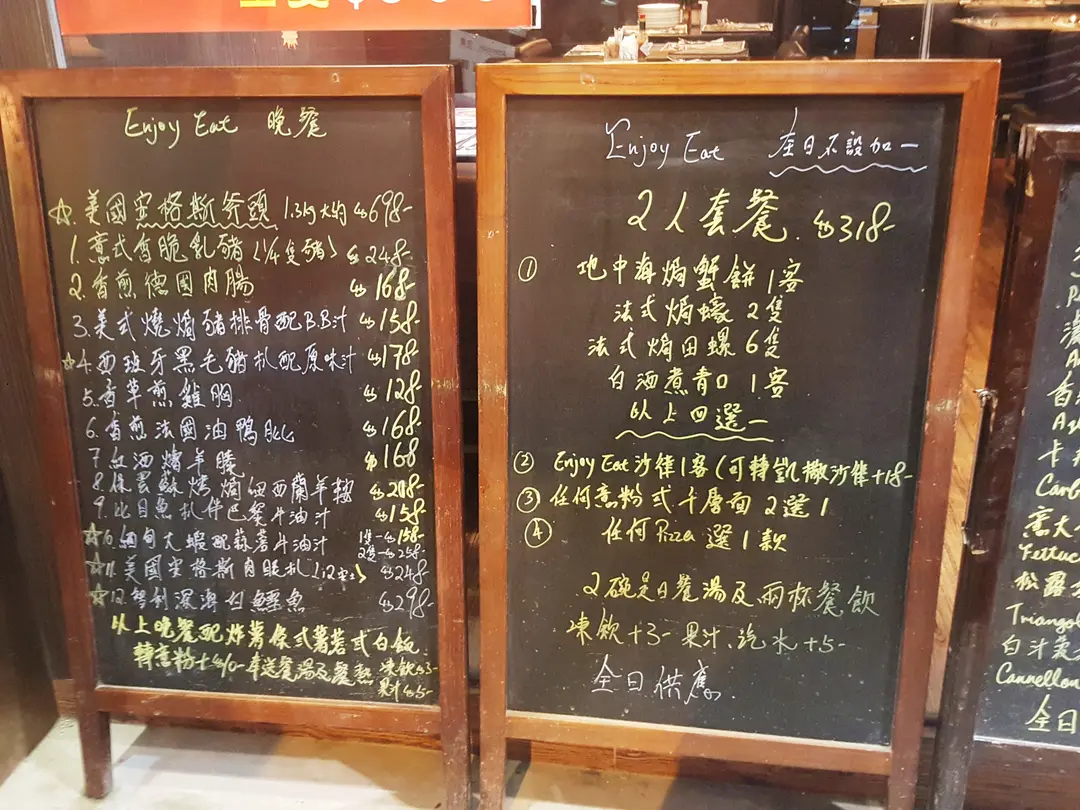 Enjoy Eat 晚餐
☆. 美國安格斯斧頭 1.3kg大約 $698-
1. 意式香脆乳豬〈1/4隻豬〉 $248-
2. 香煎德國肉腸 $168-
3. 美式燒焗豬排骨配B.B汁 $158-
☆4. 西班牙黑毛豬扒配原味汁 $178-
5. 香草煎雞胸 $128-
6. 香煎法國油鴨肶 $168-
7 紅酒燴羊膝 $168
8. 保雲酥烤焗紐西蘭羊鞍 $208-
9. 比目魚扒伴巴馬牛油汁 $158-
☆10. 緬甸大蝦配蒜蓉牛油汁 1隻-$158-
2隻-$258-
☆11. 美國安格斯肉眼扒〈12安士〉 $248-
☆12. 智利深海白鱈魚 $298-
以上晚餐配炸薯條或薯蓉或白飯
轉意粉+$10- 奉送餐湯及餐熱 凍飲$3-
果汁$5-
Enjoy Eat 全日不設加一
2人套餐. $318-
① 地中海焗蟹餅 1客
法式焗蠔 2隻
法式焗田螺 6隻
白酒煮青口 1客
以上四選一
② Enjoy Eat沙律1客(可轉凱撒沙律+18-
③ 任何意粉或千層面 2選1
④ 任何Pizza 選1款
2碗是日餐湯及兩杯餐飲
凍飲+3- 果汁.汽水+5-
全日供應.
Triangol
Cannellon
全日